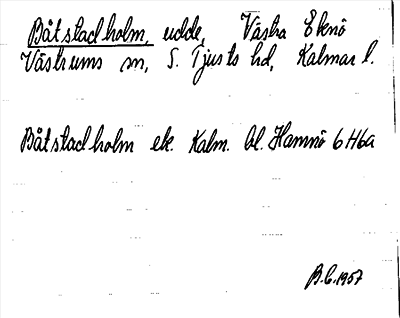 Båtstadholm, udde, Västra Eknö
Västrums sn, S. Tjusts hd, Kalmar l.
Båtstadholm ek. Kalm. bl. Hamnö 6 H6a
B.C. 1957